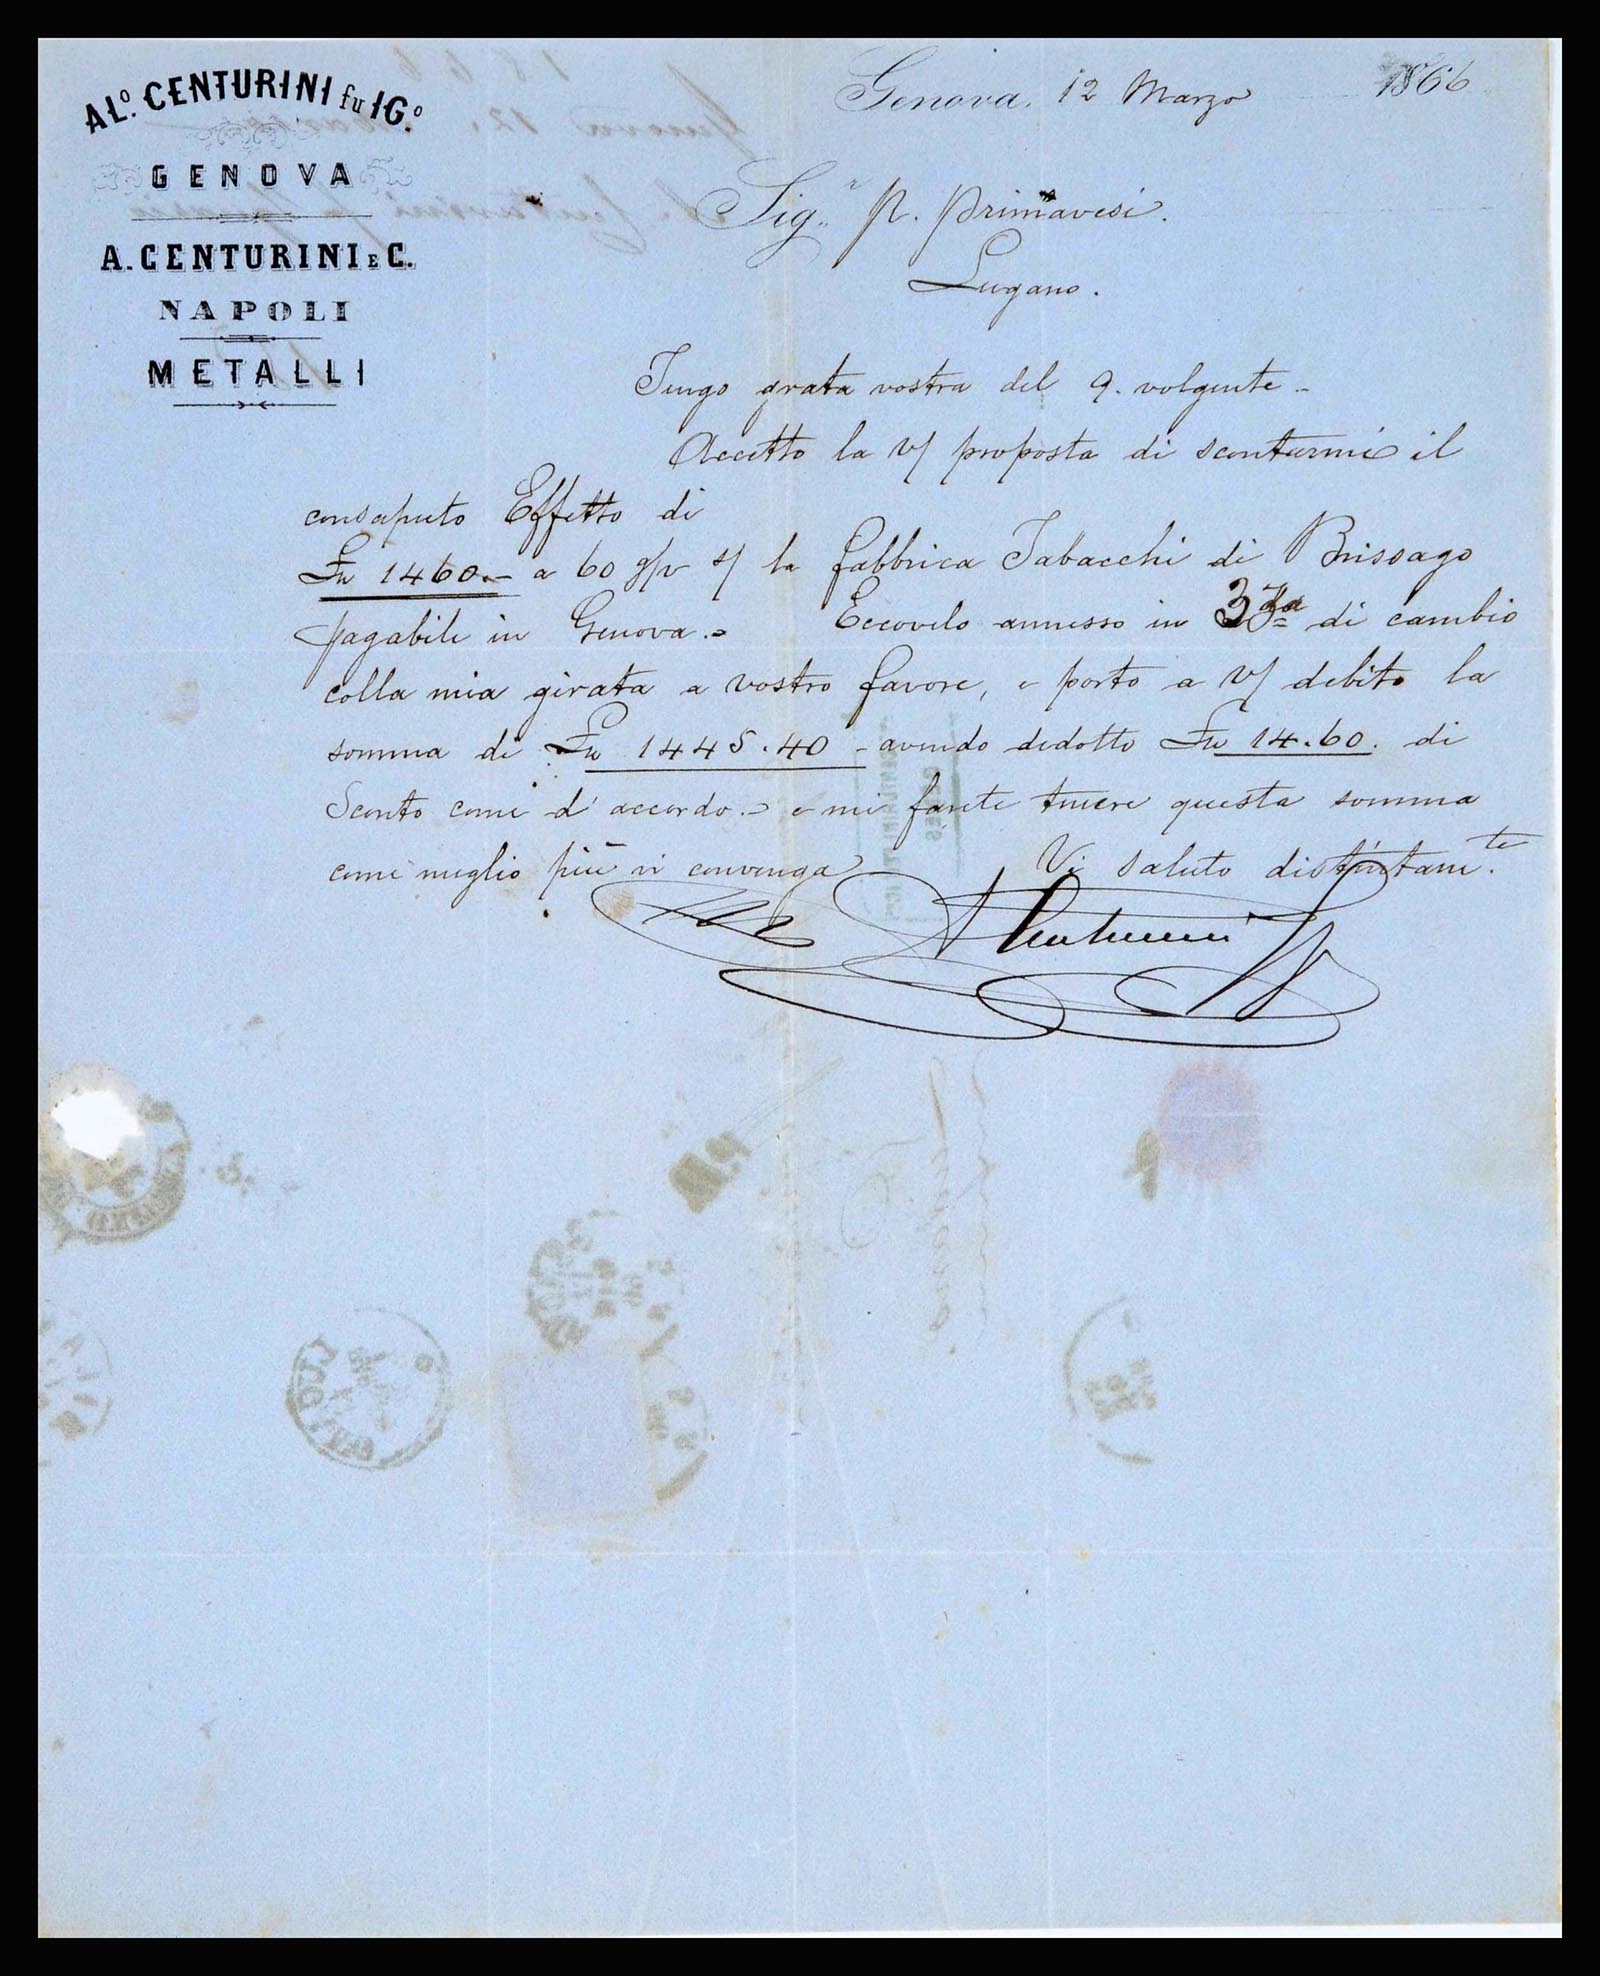 AL.º CENTURINI fu IG.º
GENOVA
A. CENTURINI E C.
NAPOLI
METALLI
Genova, 12 Marzo 1866
Sig.r P. Primavesi.
Lugano.
Tengo grata vostra del 9. volgente -
Accetto la v/ proposta di scontarmi il
consaputo Effetto di
Fn 1460.- a 60 g/v s/ la fabbrica Tabacchi di Brissago
pagabile in Genova.- Eccovelo annesso in 3za di cambio
colla mia girata a vostro favore, e porto a v/ debito la
somma di Fn 1445.40 - avendo dedotto Fn 14.60. di
Sconto come d'accordo.- e mi farete tenere questa somma
come meglio più vi convenga Vi saluto distintam.te
A Centurini